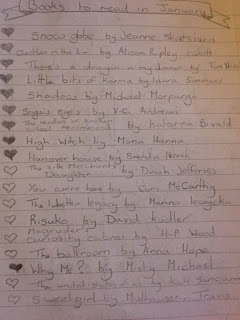 Books to read in January
Snow globe by Jeanne Skartsiara
Castles in the Air by Alison Ripley Cubitt
There's a dragon in my dinner by Tom
Little bits of Karma by Laura Simmons
Shadow by Michael Morpurgo
eyes by V.C. Andrews
The readers of Broken Wheel recommend by Katarina Bivald
High Witch by Mona Hanna
Hanover house by Brenda Novak
The Silk Merchant's Daughter by Dinah Jefferies
You were here by Cori McCarthy
The Lubetkin legacy by Marina Lewycka
Risuko by David Kudler
Magruder's curiosity cabinet by H.P Wood
The ballroom by Anna Hope
Why Me? by Misty Michael
The united states of by
Sweetgirl by Mulhauser, Travis